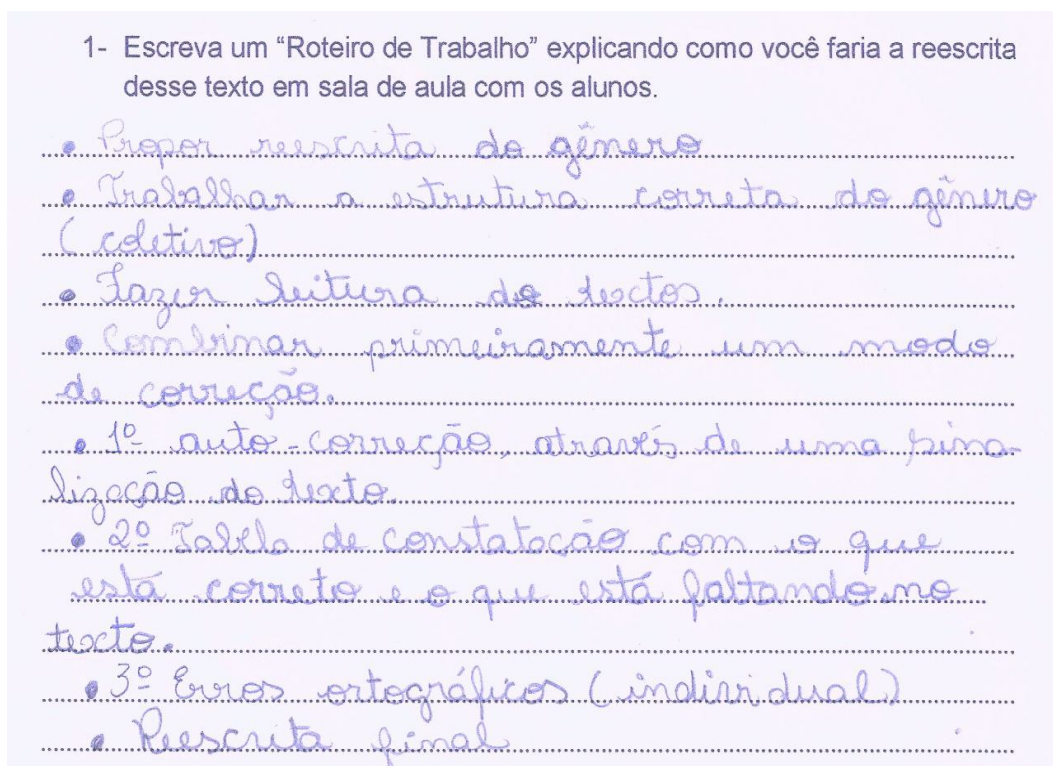 1- Escreva um “Roteiro de Trabalho” explicando como você faria a reescrita
desse texto em sala de aula com os alunos.
• Propor reescrita do gênero
• Trabalhar a estrutura correta do gênero
(coletivo)
• Fazer leitura do textos.
• Combinar primeiramente um modo
de correção.
• 1º auto-correção, através de uma sina-
lização do texto.
• 2º Tabela de constatação com o que
está correto e o que está faltando no
texto.
• 3º Erros ortográficos (individual)
• Reescrita final